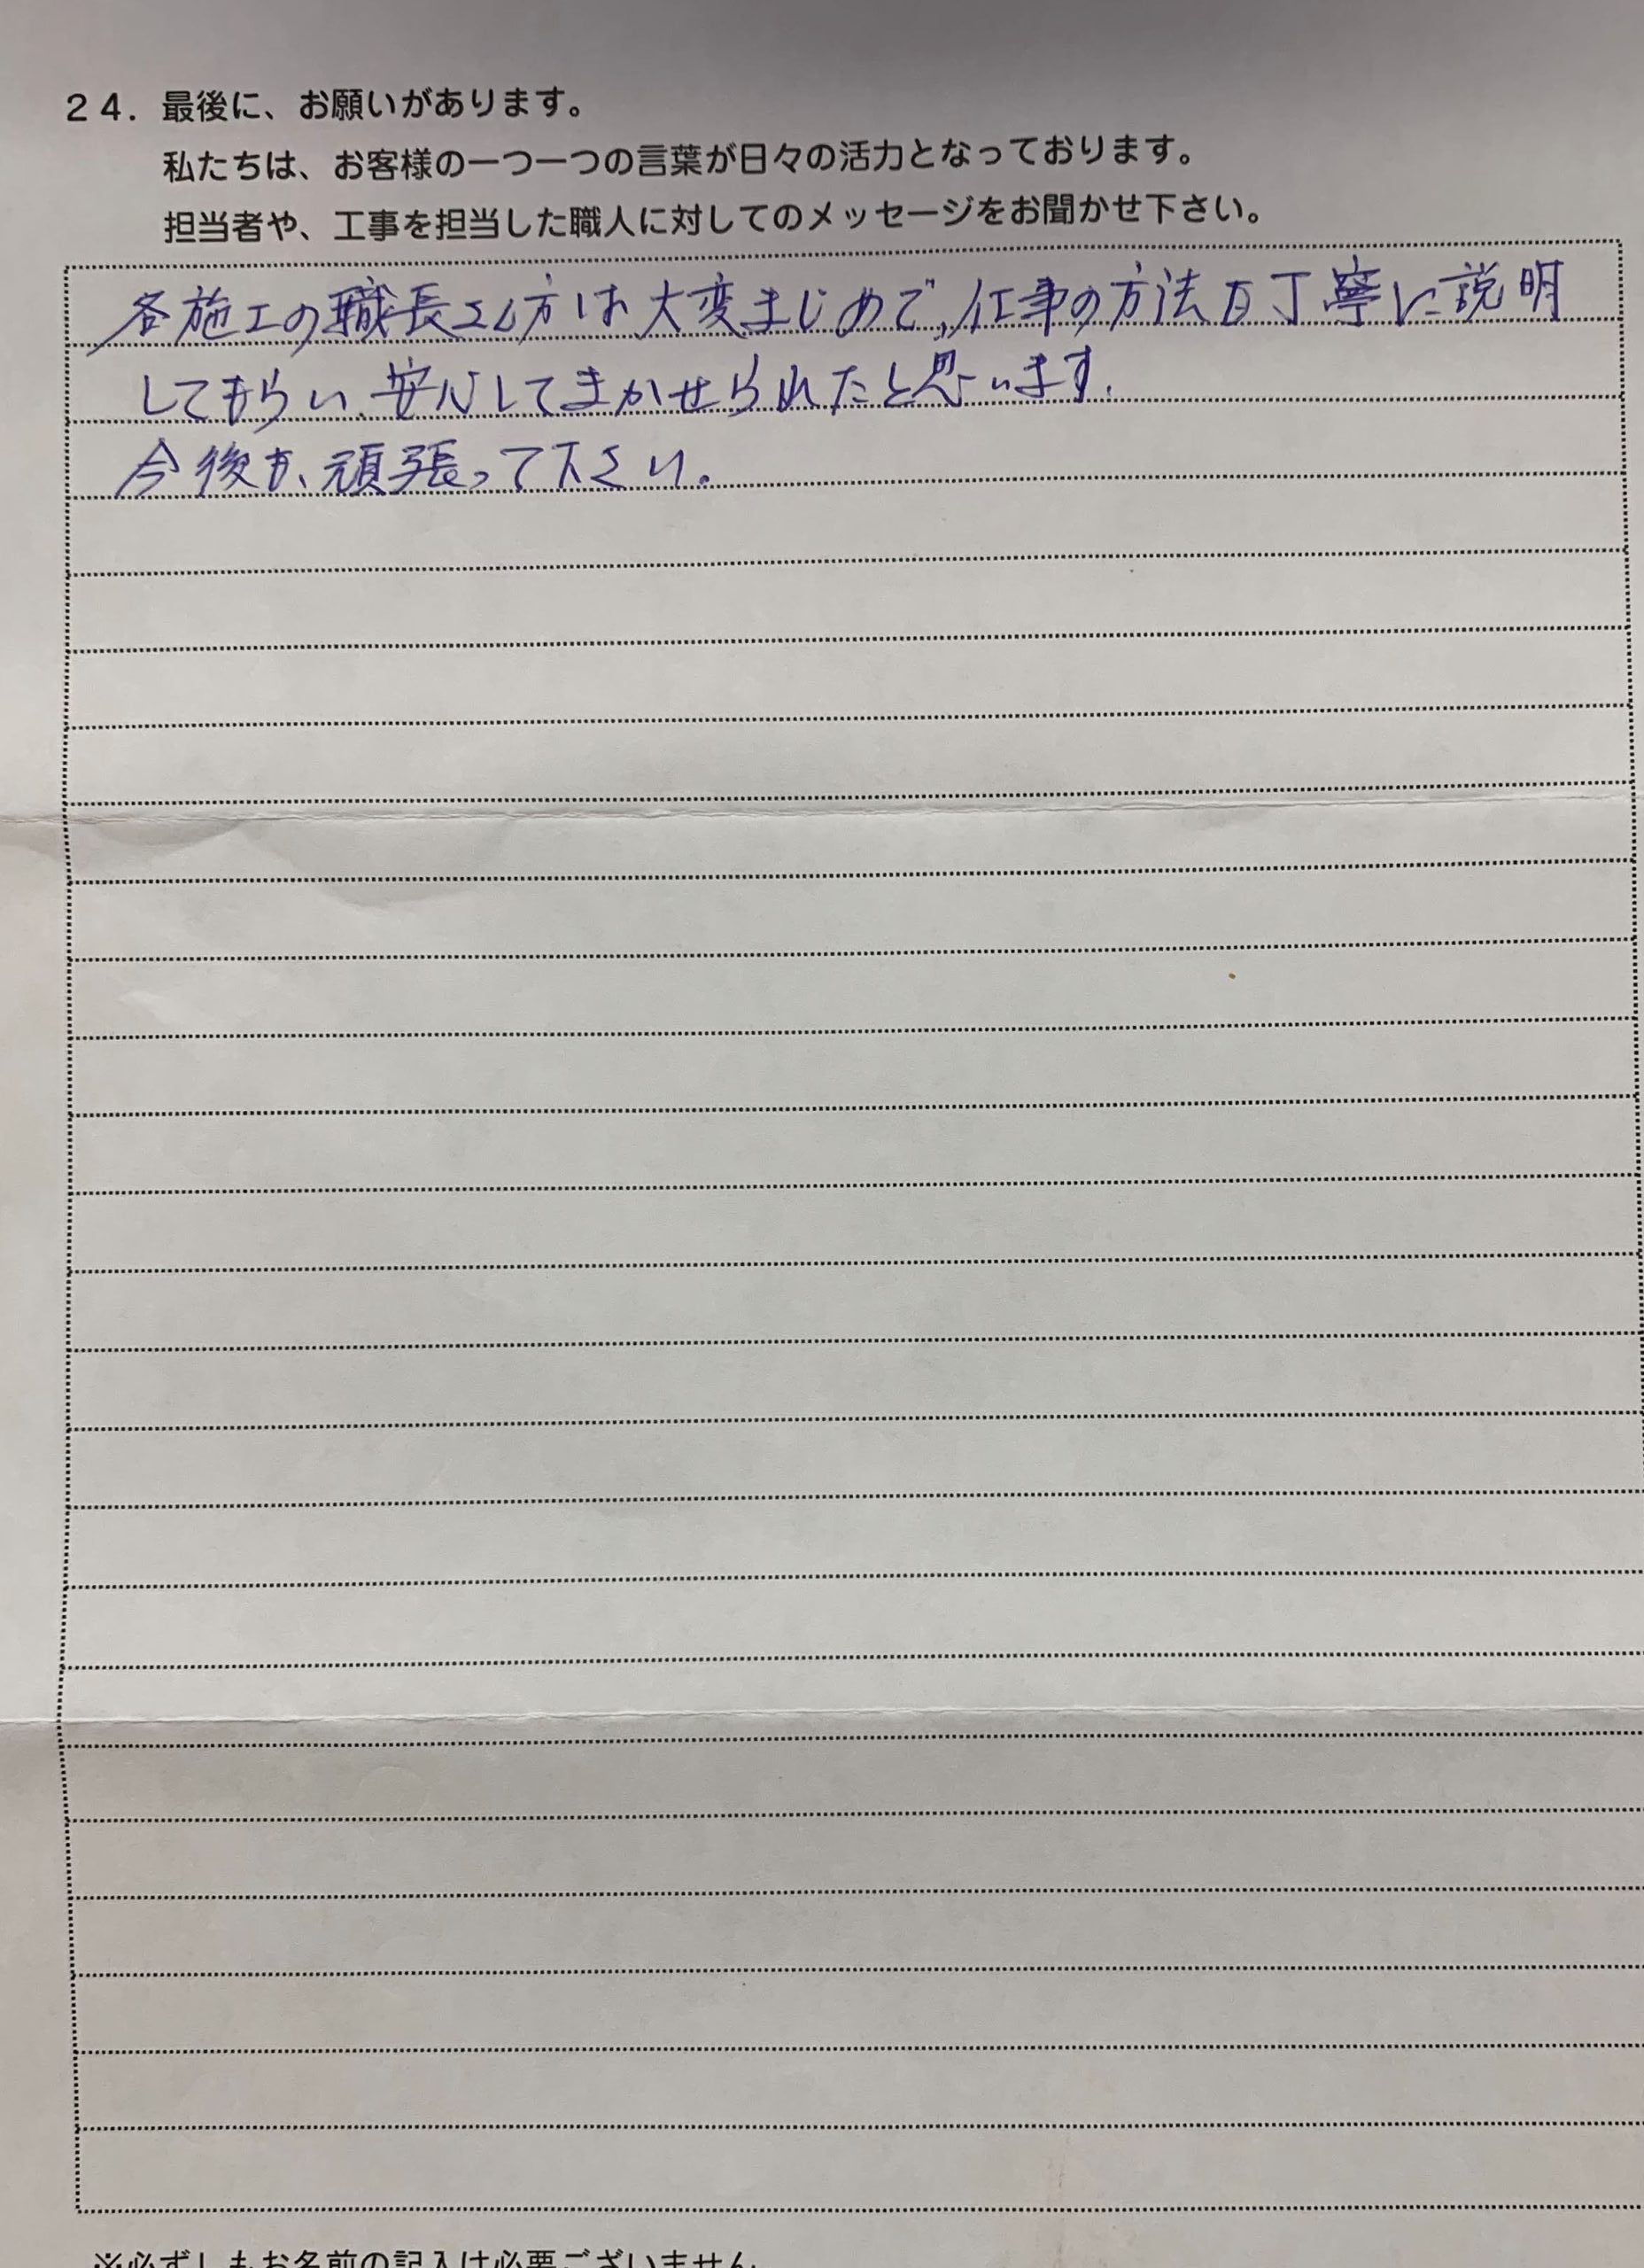 24．最後に、お願いがあります。
私たちは、お客様の一つ一つの言葉が日々の活力となっております。
担当者や、工事を担当した職人に対してのメッセージをお聞かせ下さい。
各施工の職長さん方は大変まじめで、仕事の方法も丁寧に説明
してもらい、安心してまかせられたと思います。
今後も、頑張って下さい。
※必ずしもお名前の記入は必要ございません